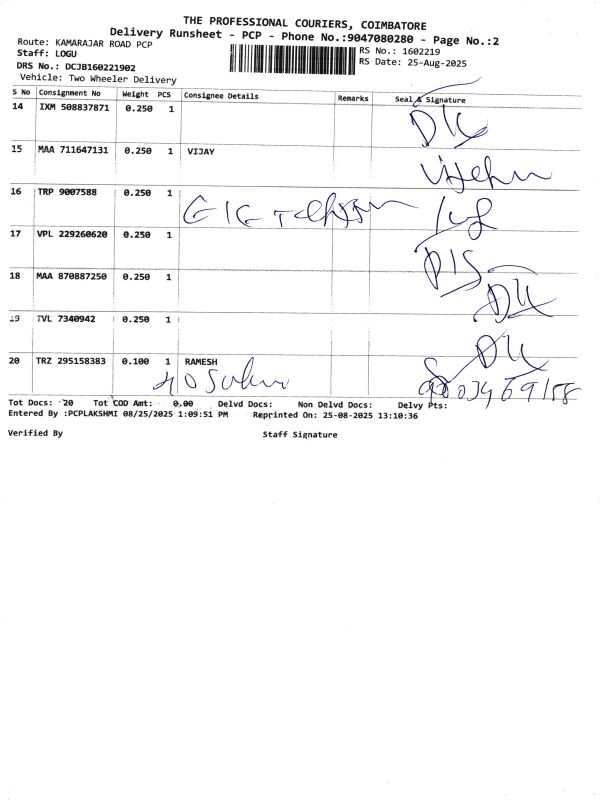 THE PROFESSIONAL COURIERS, COIMBATORE
Delivery Runsheet - PCP - Phone No.:9047080280 - Page No.:2
Route: KAMARAJAR ROAD PCP
Staff: LOGU
DRS No.: DCJB160221902
Vehicle: Two Wheeler Delivery
RS No.: 1602219
RS Date: 25-Aug-2025
S No Consignment No Weight PCS Consignee Details Remarks Seal & Signature
14 IXM 508837871 0.250 1
15 MAA 711647131 0.250 1 VIJAY
16 TRP 9007588 0.250 1
17 VPL 229260620 0.250 1
18 MAA 870887250 0.250 1
19 TVL 7340942 0.250 1
20 TRZ 295158383 0.100 1 RAMESH
Tot Docs: 20 Tot COD Amt: 0.00 Delvd Docs: Non Delvd Docs: Delvy Pts:
Entered By :PCPLAKSHMI 08/25/2025 1:09:51 PM Reprinted On: 25-08-2025 13:10:36
Verified By Staff Signature